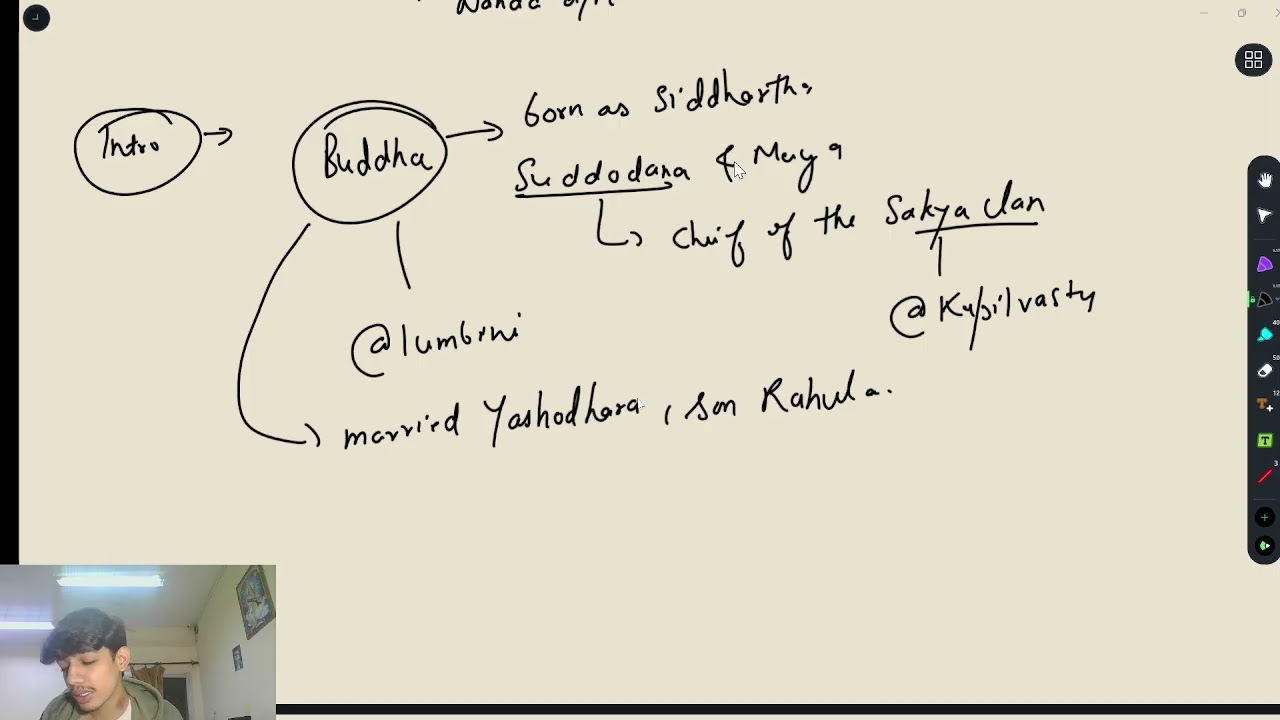 Nanda
born as Siddhartha
Intro → Buddha →
Suddodana & Maya
↳ Chief of the Sakya clan
@Kapilvastu
@lumbini
married Yashodhara, son Rahula.